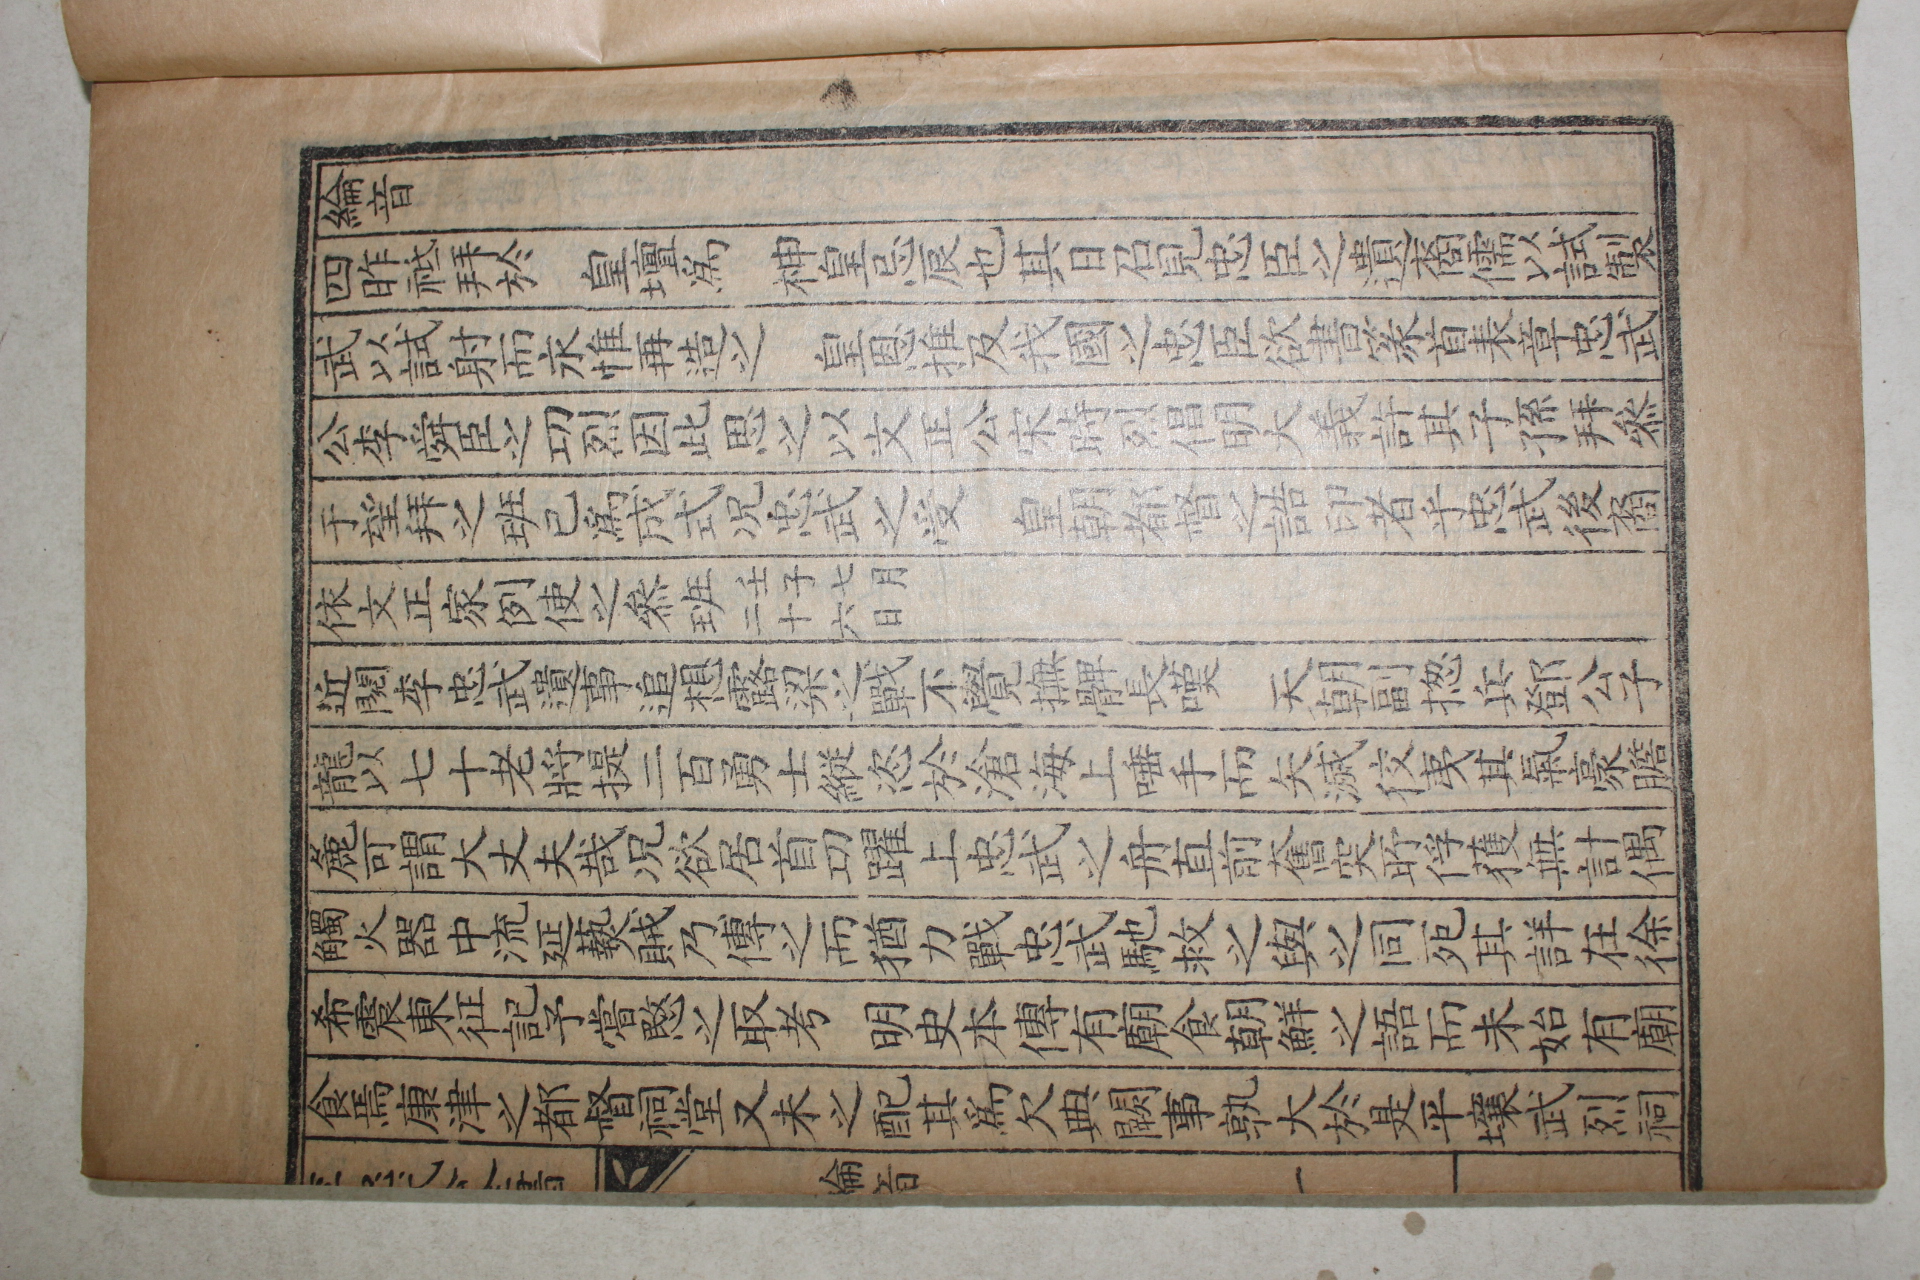 綸音
四昨祗拜於 皇壇爲 神皇忌辰也其日召見忠臣之遺裔儒以試製
武以試射而永惟再造之 皇恩推及我國之忠臣欲書首表章忠武
公李舜臣之功烈因此思之以文正公宋時烈倡明大義許其子孫拜叅
于望拜之班已爲成式况忠武之受 皇朝都督之誥印者乎忠武後裔
依文正家例使之叅班 壬子七月二十六日
近閱李忠武遺事追想露梁之戰不覺撫髀長嘆 天朝副摠兵鄧公子
龍以七十老將提二百勇士縱恣於滄海上唾手而矢滅狡夷其氣豪膽
麁可謂大丈夫哉况欲居首功躍上忠武之舟直前奮突斫俘獲無計偶
觸火器中流延爇賊乃傅之而猶力戰忠武馳救之與之同死其詳在徐
希震東征記予嘗愍之取考 明史本傳有廟食朝鮮之語而未始有廟
食焉康津之都督祠堂又未之配其爲欠典闕事孰大於是平壤武烈祠
綸音 一